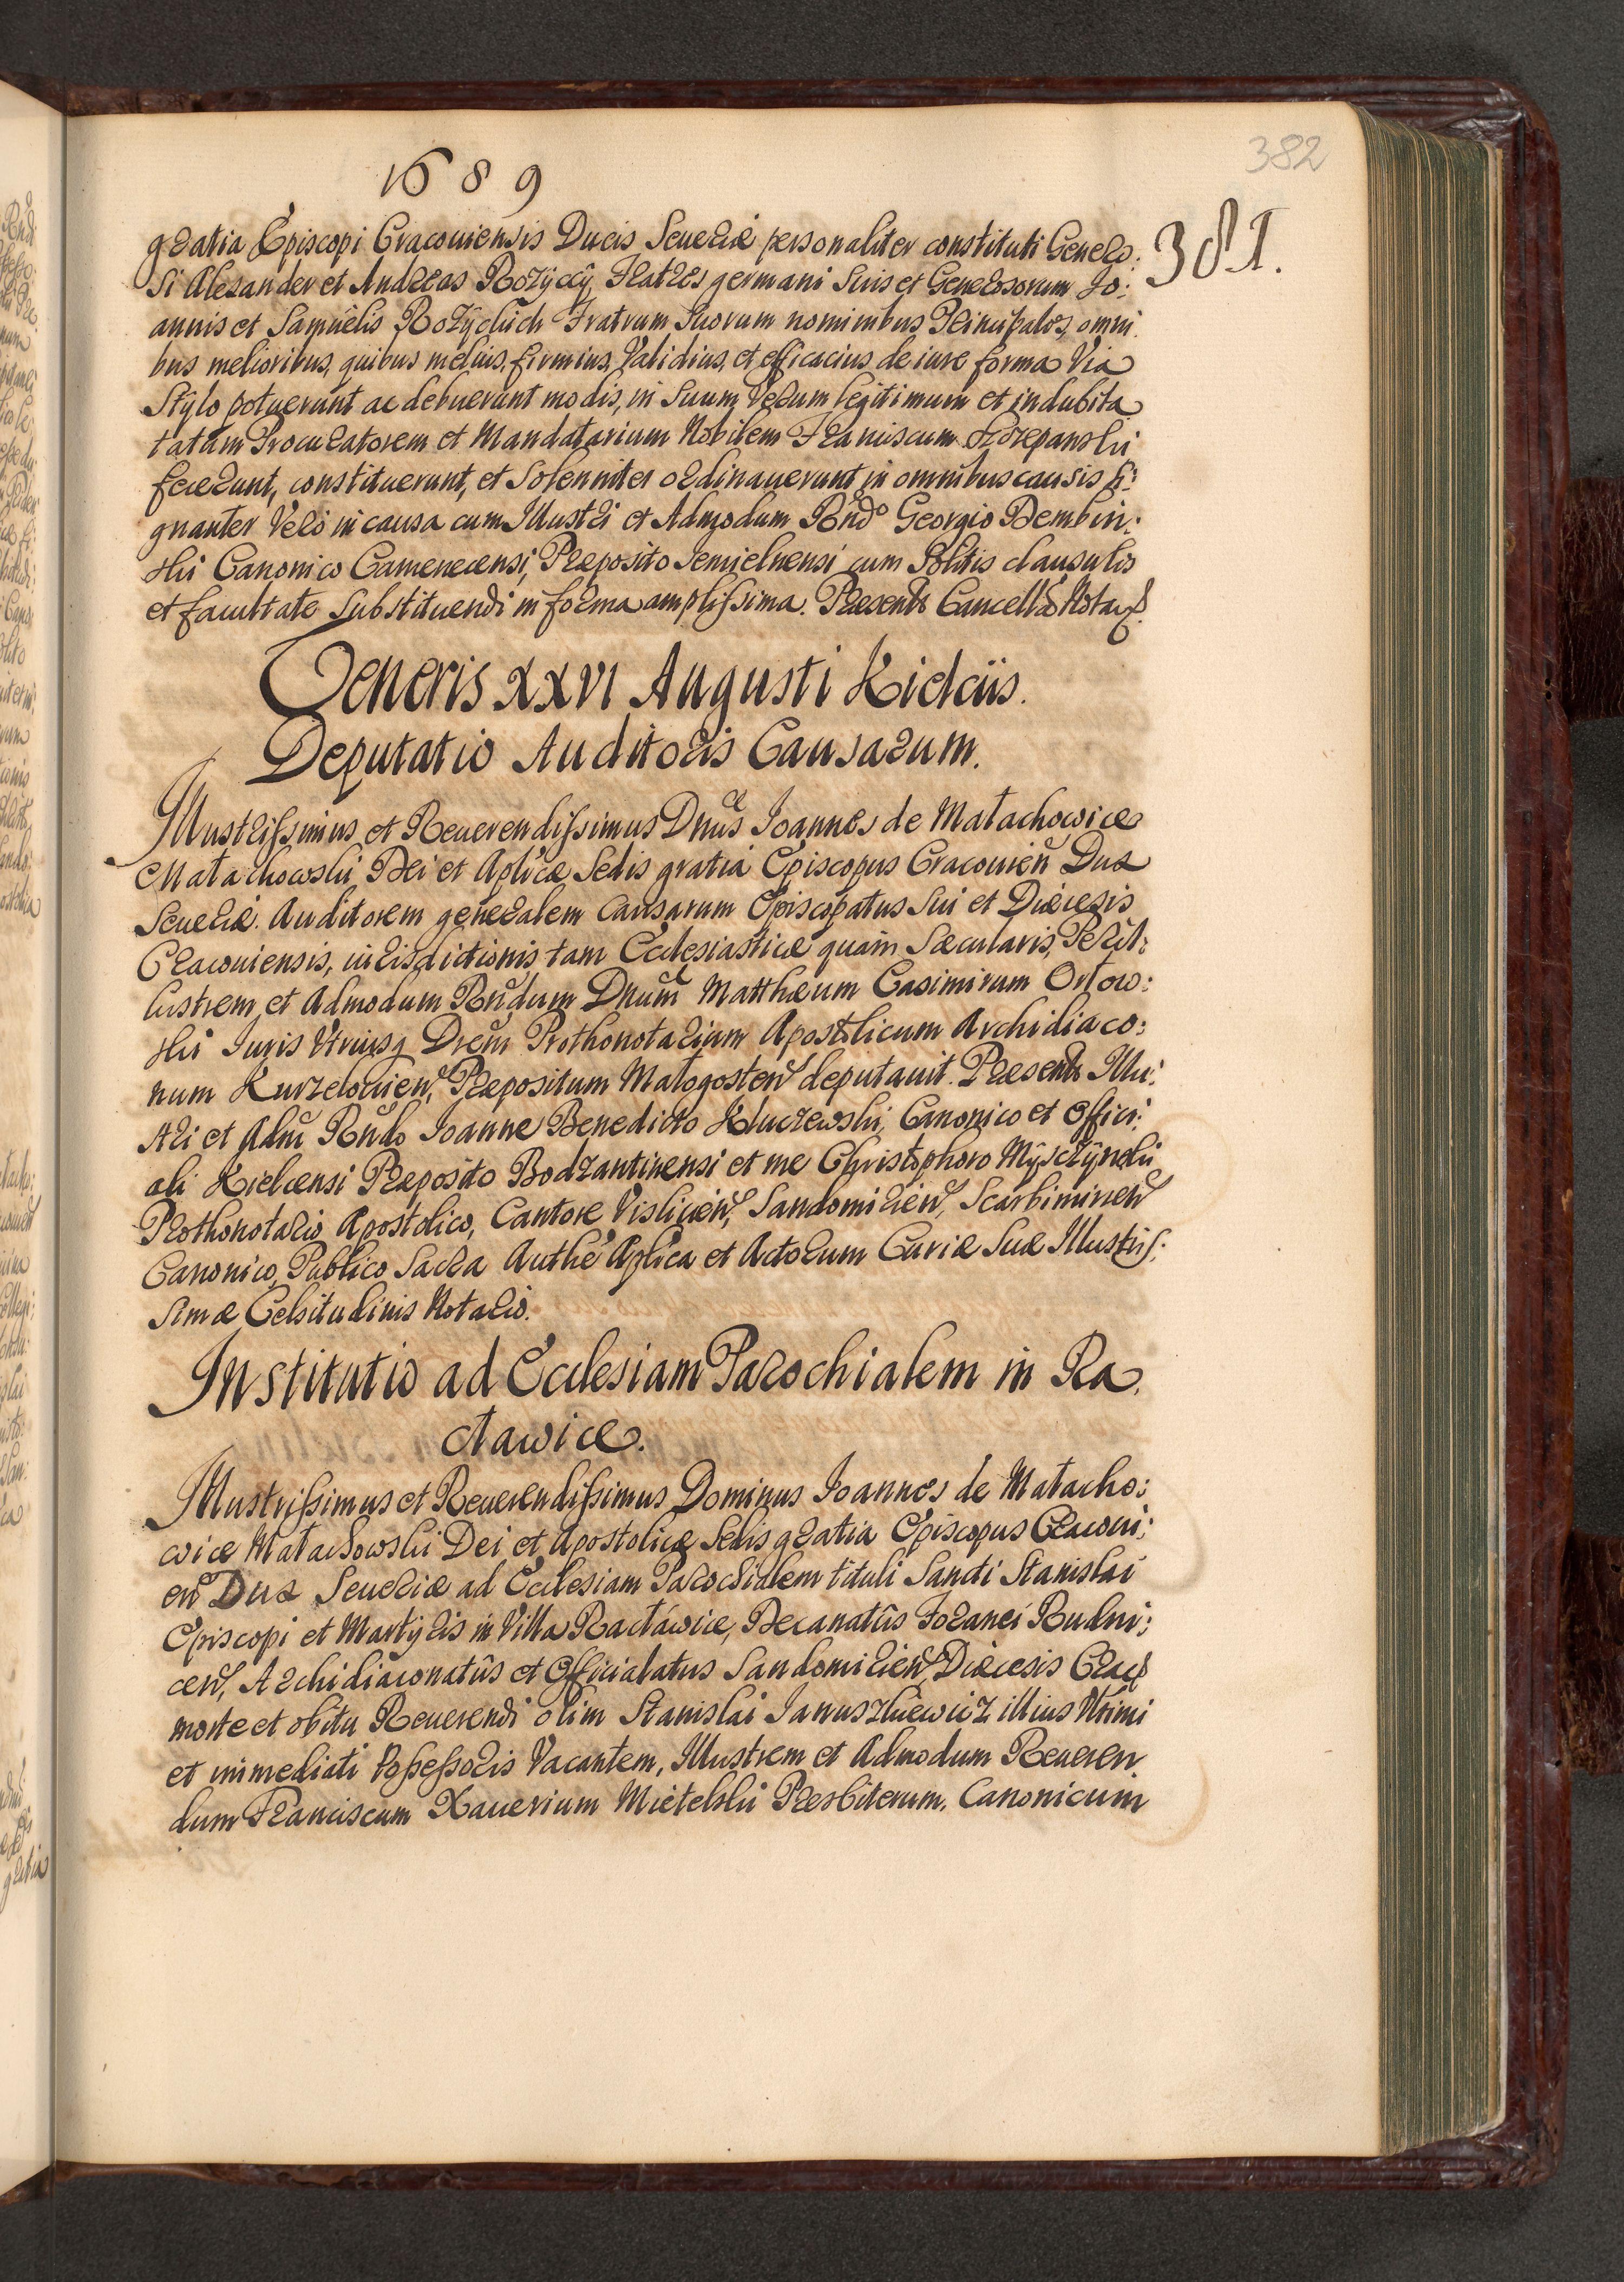 382
1689
381.
gratia Episcopi Cracouiensis Ducis Seueriæ personaliter constituti Genero:
si Alexander et Andreas Rozÿccÿ Fratres germani Suis et Generosorum Jo:
annis et Samuelis Rozÿckich Fratrum Suorum nominibus Principales, omni
bus melioribus, quibus melius, firmius, Validius, et efficacius de iure forma Via
Stÿlo potuerunt ac debuerunt modis, in Suum Verum legitimum et indubita
tatam Procuratorem et Mandatarium Nobilem Franciscum Szczepanski
fecerunt, constituerunt, et Solenniter ordinauerunt in omnibus causis Si:
gnanter Vero in causa cum Illustri et Admodum Rndo Georgio Dembin:
ski Canonico Camenecensi, Præposito Semielnensi cum Solitis clausulis
et facultate Substituendi in forma amplissima. Præsente Cancellæ Notar.
Veneris XXVI Augusti Kielciis.
Deputatio Auditoris Causarum.
Illustrissimus et Reuerendissimus Dnus Joannes de Małachowice
Małachowski Dei et Aplicæ Sedis gratia Episcopus Cracouien Dux
Seueriæ. Auditorem generalem Causarum Episcopatus Sui et Diæcesis
Cracouiensis, iurisdictionis tam Ecclesiasticæ quam Sæcularis, Peril:
lustrem et Admodum Rndum Dnum Matthæum Casimirum Orłow:
ski Juris Vtriusq Drem Prothonotarium Apostolicum Archidiaco:
num Kurzelouien, Præpositum Małogosten deputauit. Præsente Illu:
stri et Adm Rndo Joanne Benedicto Kluczewski, Canonico et Offici:
ali Kielcensi Præposito Bodzantinensi et me Christophoro Mÿsczÿnski
Prothonotario Apostolico, Cantore Vislicien, Sandomirien, Scarbimirien
Canonico, Publico Sacra Authe Aplica et Actorum Curiæ Suæ Illustris:
simæ Celsitudinis Notario.
Institutio ad Ecclesiam Parochialem in Ra
cławice.
Illustrissimus et Reuerendissimus Dominus Joannes de Małacho:
wice Małachowski Dei et Apostolicæ Sedis gratia Episcopus Cracoui:
en Dux Seueriæ ad Ecclesiam Parochialem tituli Sancti Stanislai
Episcopi et Martÿris in Villa Racławice, Decanatûs Foranei Rudni:
cen, Archidiaconatûs et Officialatus Sandomirien Diæcesis Crac
morte et obitu Reuerendi olim Stanislai Januszkiewicz illius Vltimi
et immediati Possessoris Vacantem, Illustrem et Admodum Reueren
dum Franciscum Xauerium Mietelski Præsbiterum, Canonicum